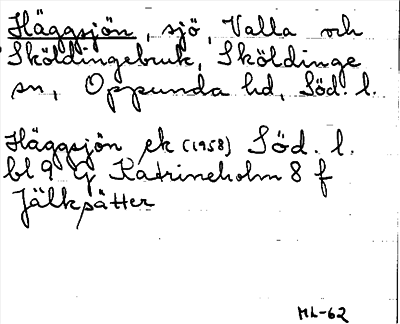 Häggsjön, sjö, Valla och
Sköldingebruk, Sköldinge
sn, Oppunda hd, Söd. l.
Häggsjön ek (1958) Söd. l.
bl 9 G Katrineholm 8 f
Jälkpsätter
ML-62